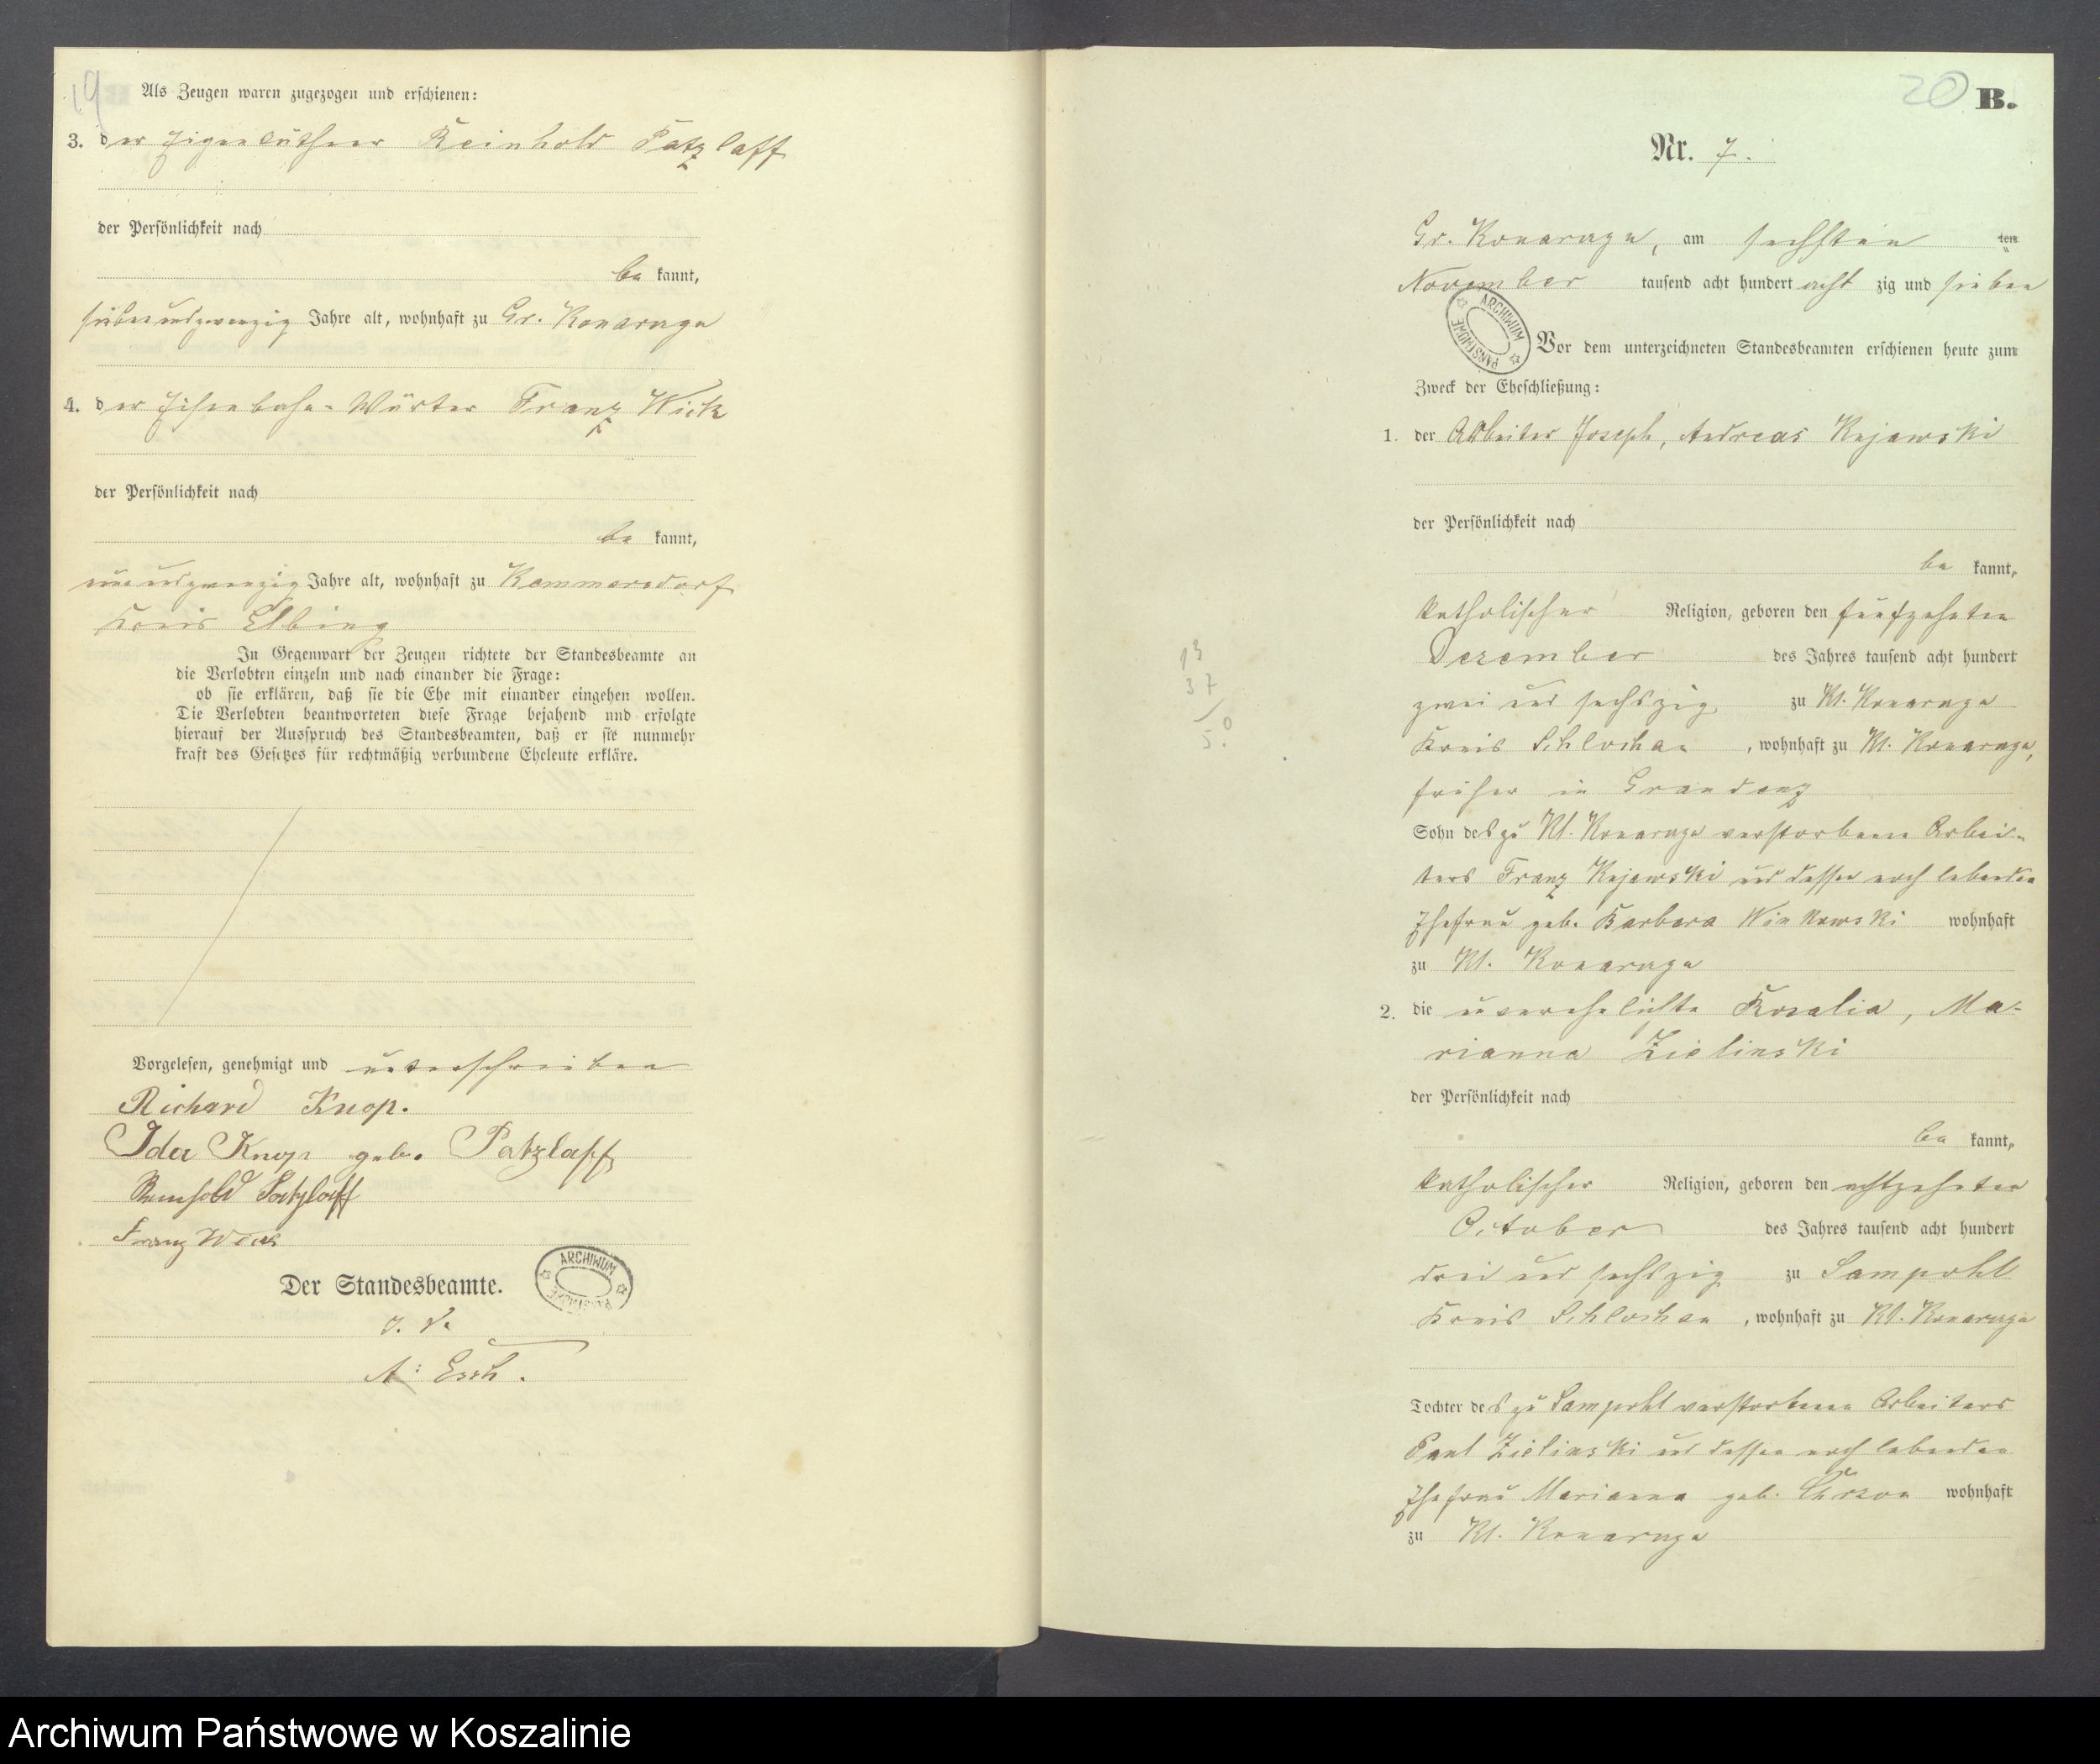 19
Als Zeugen waren zugezogen und erschienen:
3. der Eigenthümer Reinhold Patzlaff
der Persönlichkeit nach
be kannt,
siebenundzwanzig Jahre alt, wohnhaft zu Gr. Konarzyn
4. der Eisenbahn-Wärter Franz Wick
der Persönlichkeit nach
be kannt,
undzwanzig Jahre alt, wohnhaft zu Kommersdorf
Kreis Elbing
In Gegenwart der Zeugen richtete der Standesbeamte an
die Verlobten einzeln und nach einander die Frage:
ob sie erklären, daß sie die Ehe mit einander eingehen wollen.
Die Verlobten beantworteten diese Frage bejahend und erfolgte
hierauf der Ausspruch des Standesbeamten, daß er sie nunmehr
kraft des Gesetzes für rechtmäßig verbundene Eheleute erkläre.
Vorgelesen, genehmigt und unterschrieben
Richard Knop.
Ida Knop geb. Patzlaff
Reinhold Patzlaff
Franz Wick
Der Standesbeamte.
ARCHIWUM PAŃSTWOWE
J. V.
A. Esch.
20 B.
Nr. 7.
Gr. Konarzyn, am sechsten ten
November tausend acht hundert acht zig und sieben
ARCHIWUM PAŃSTWOWE
Vor dem unterzeichneten Standesbeamten erschienen heute zum
Zweck der Eheschließung:
1. der Arbeiter Joseph, Andreas Kujawski
der Persönlichkeit nach
be kannt,
katholischer Religion, geboren den fünfzehnten
Dezember des Jahres tausend acht hundert
zwei und sechszig zu Kl. Konarzyn
Kreis Schlochau, wohnhaft zu Kl. Konarzyn,
früher in Graudenz
13
37
50
Sohn des zu Kl. Konarzyn verstorbenen Arbei-
ters Franz Kujawski und dessen noch lebenden
Ehefrau geb. Barbara wohnhaft
zu Kl. Konarzyn
2. die unverehelichte Rosalia, Ma-
rianna Zielinski
der Persönlichkeit nach
be kannt,
katholischer Religion, geboren den achtzehnten
October des Jahres tausend acht hundert
drei und sechszig zu Sampohl
Kreis Schlochau, wohnhaft zu Kl. Konarzyn
Tochter des zu Sampohl verstorbenen Arbeiters
Paul Zielinski und dessen noch lebenden
Ehefrau Marianna geb. wohnhaft
zu Kl. Konarzyn
Archiwum Państwowe w Koszalinie